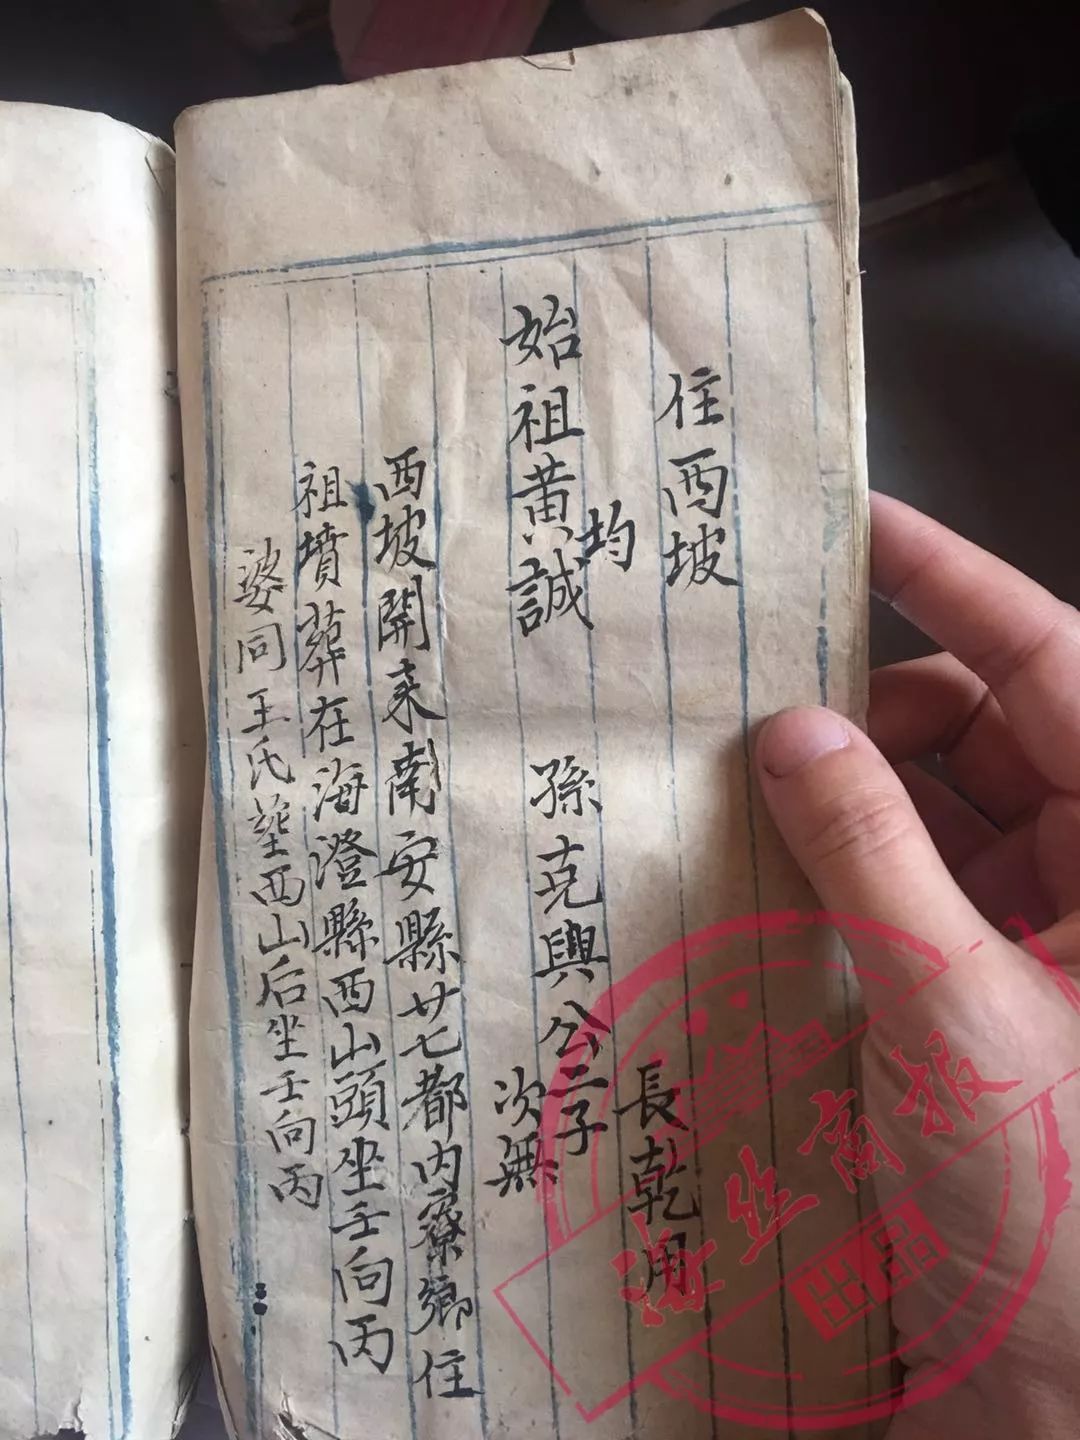 住西坡
均
始祖黄誠
孫克興公二子
長乾用
次無
西坡開來南安縣廿七都内寮鄉住
祖墳葬在海澄縣西山頭坐壬向丙
婆同王氏塟西山后坐壬向丙
海丝商报
出品